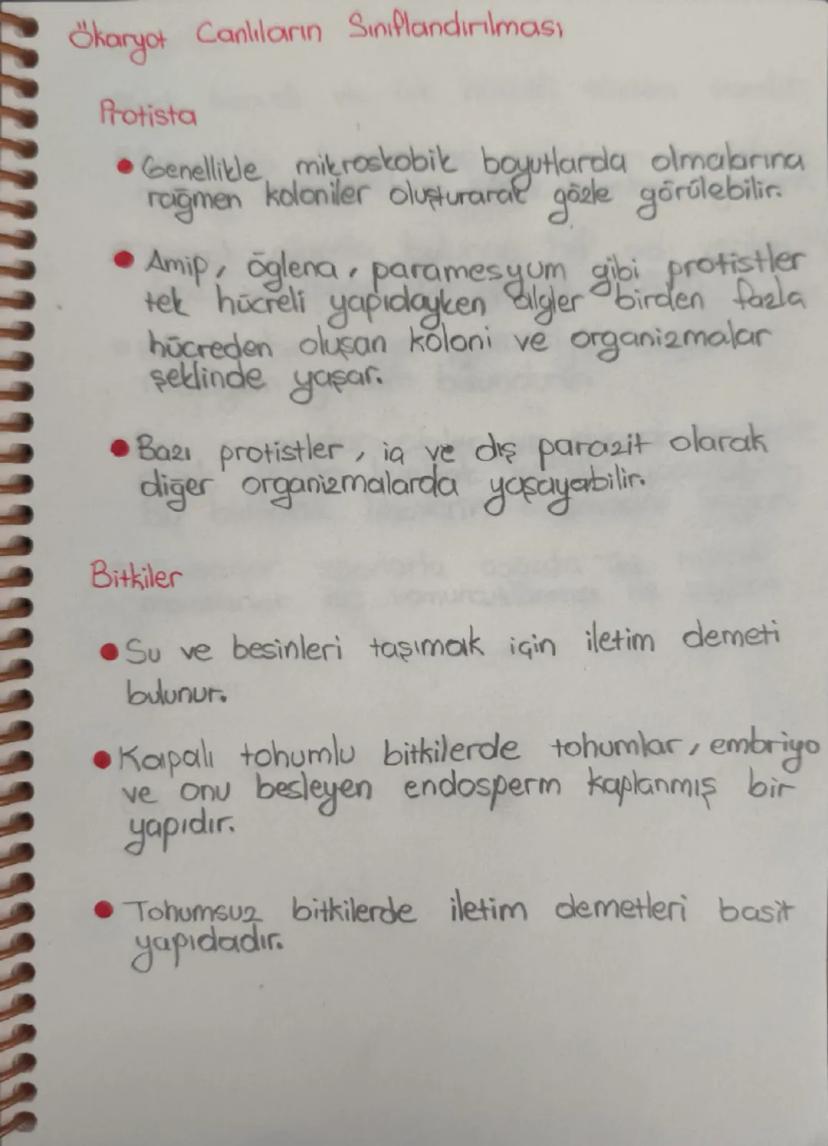 Ökaryot Canlıların Sınıflandırılması
Protista
• Genellikle mikroskobik boyutlarda olmalarına
rağmen koloniler oluşturarak gözle görülebilir.
• Amip, öglena, paramesyum gibi protistler
tek hücreli yapıdayken algler birden fazla
hücreden oluşan koloni ve organizmalar
şeklinde yaşar.
• Bazı protistler, iç ve dış parazit olarak
diğer organizmalarda yaşayabilir.
Bitkiler
• Su ve besinleri taşımak için iletim demeti
bulunur.
• Kapalı tohumlu bitkilerde tohumlar, embriyo
ve onu besleyen endosperm kaplanmış bir
yapıdır.
• Tohumsuz bitkilerde iletim demetleri basit
yapıdadır.